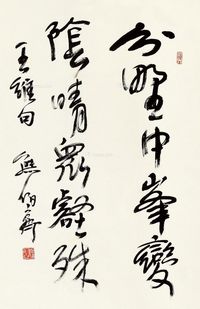 分野中峯變
陰晴衆壑殊
王維句 熊伯齊